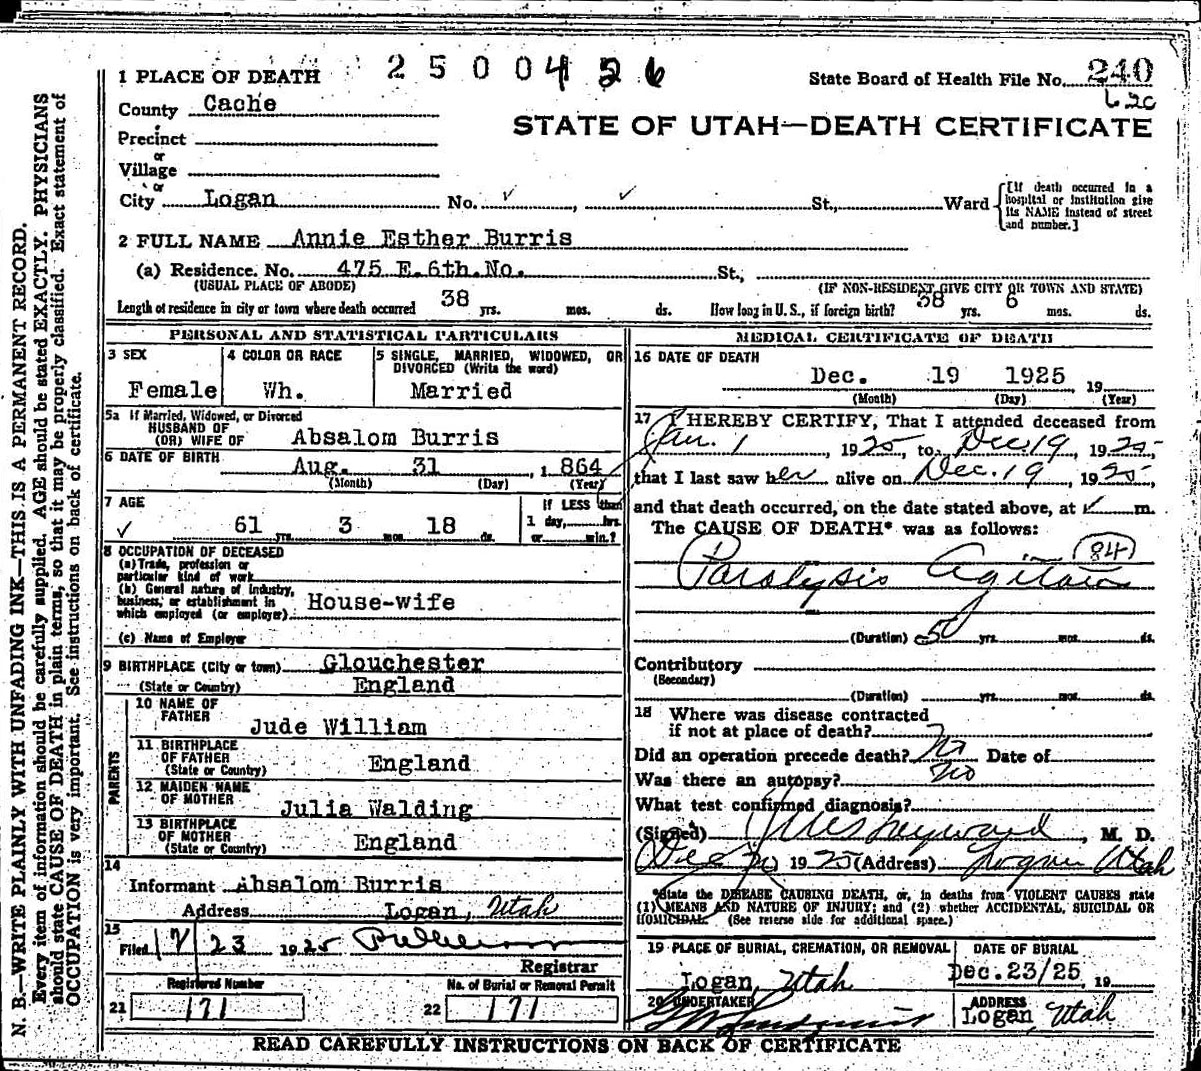 N. B.—WRITE PLAINLY WITH UNFADING INK—THIS IS A PERMANENT RECORD.
Every item of information should be carefully supplied. AGE should be stated EXACTLY. PHYSICIANS
should state CAUSE OF DEATH in plain terms, so that it may be properly classified. Exact statement of
OCCUPATION is very important. See instructions on back of certificate.
2500426
1 PLACE OF DEATH
State Board of Health File No. 240
County Cache
STATE OF UTAH—DEATH CERTIFICATE
Precinct
or
Village
or
City Logan No. ✓, ✓ St., Ward
[If death occurred in a
hospital or institution give
its NAME instead of street
and number.]
2 FULL NAME Annie Esther Burris
(a) Residence. No. 475 E. 6th. No. St.,
(USUAL PLACE OF ABODE) (IF NON-RESIDENT GIVE CITY OR TOWN AND STATE)
Length of residence in city or town where death occurred 38 yrs. mos. ds. How long in U. S., if foreign birth? 38 yrs. 6 mos. ds.
PERSONAL AND STATISTICAL PARTICULARS
3 SEX
Female
4 COLOR OR RACE
Wh.
5 SINGLE, MARRIED, WIDOWED, OR
DIVORCED (Write the word)
Married
5a If Married, Widowed, or Divorced
HUSBAND OF
(OR) WIFE OF Absalom Burris
6 DATE OF BIRTH
Aug. 31, 1 864
(Month) (Day) (Year)
7 AGE
✓ 61 yrs. 3 mos. 18 ds.
If LESS than
1 day, hrs.
or min.?
8 OCCUPATION OF DECEASED
(a) Trade, profession or
particular kind of work
(b) General nature of industry,
business, or establishment in
which employed (or employer) House-wife
(c) Name of Employer
9 BIRTHPLACE (City or town) Glouchester
(State or Country) England
PARENTS
10 NAME OF
FATHER
Jude William
11 BIRTHPLACE
OF FATHER
(State or Country) England
12 MAIDEN NAME
OF MOTHER
Julia Walding
13 BIRTHPLACE
OF MOTHER
(State or Country) England
14
Informant Absalom Burris
Address Logan, Utah
15
Filed 12/23 1925
Registrar
Registered Number
21 171
No. of Burial or Removal Permit
22 171
MEDICAL CERTIFICATE OF DEATH
16 DATE OF DEATH
Dec. 19 1925, 19
(Month) (Day) (Year)
17 I HEREBY CERTIFY, That I attended deceased from
Jan. 1, 1925, to Dec 19 1925,
that I last saw her alive on Dec. 19, 1925,
and that death occurred, on the date stated above, at ✓ m.
The CAUSE OF DEATH* was as follows:
84
Paralysis Agitans
(Duration) yrs. mos. ds.
Contributory
(Secondary)
(Duration) yrs. mos. ds.
18 Where was disease contracted
if not at place of death?
Did an operation precede death? No Date of
Was there an autopsy? No
What test confirmed diagnosis?
(Signed) , M. D.
Dec 1925 (Address) Logan Utah
*State the DISEASE CAUSING DEATH, or, in deaths from VIOLENT CAUSES state
(1) MEANS AND NATURE OF INJURY; and (2) whether ACCIDENTAL, SUICIDAL OR
HOMICIDAL. (See reverse side for additional space.)
19 PLACE OF BURIAL, CREMATION, OR REMOVAL
Logan, Utah
DATE OF BURIAL
Dec. 23/25, 19
20 UNDERTAKER
ADDRESS
Logan, Utah
READ CAREFULLY INSTRUCTIONS ON BACK OF CERTIFICATE